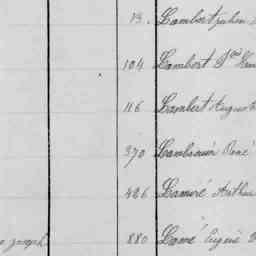 73. Lambert Julien
104 Lambert J.ne
116 Lambert Auguste
370 Lambinon René
426 Lamoré Arthur
joseph 880 Lamé Eugène